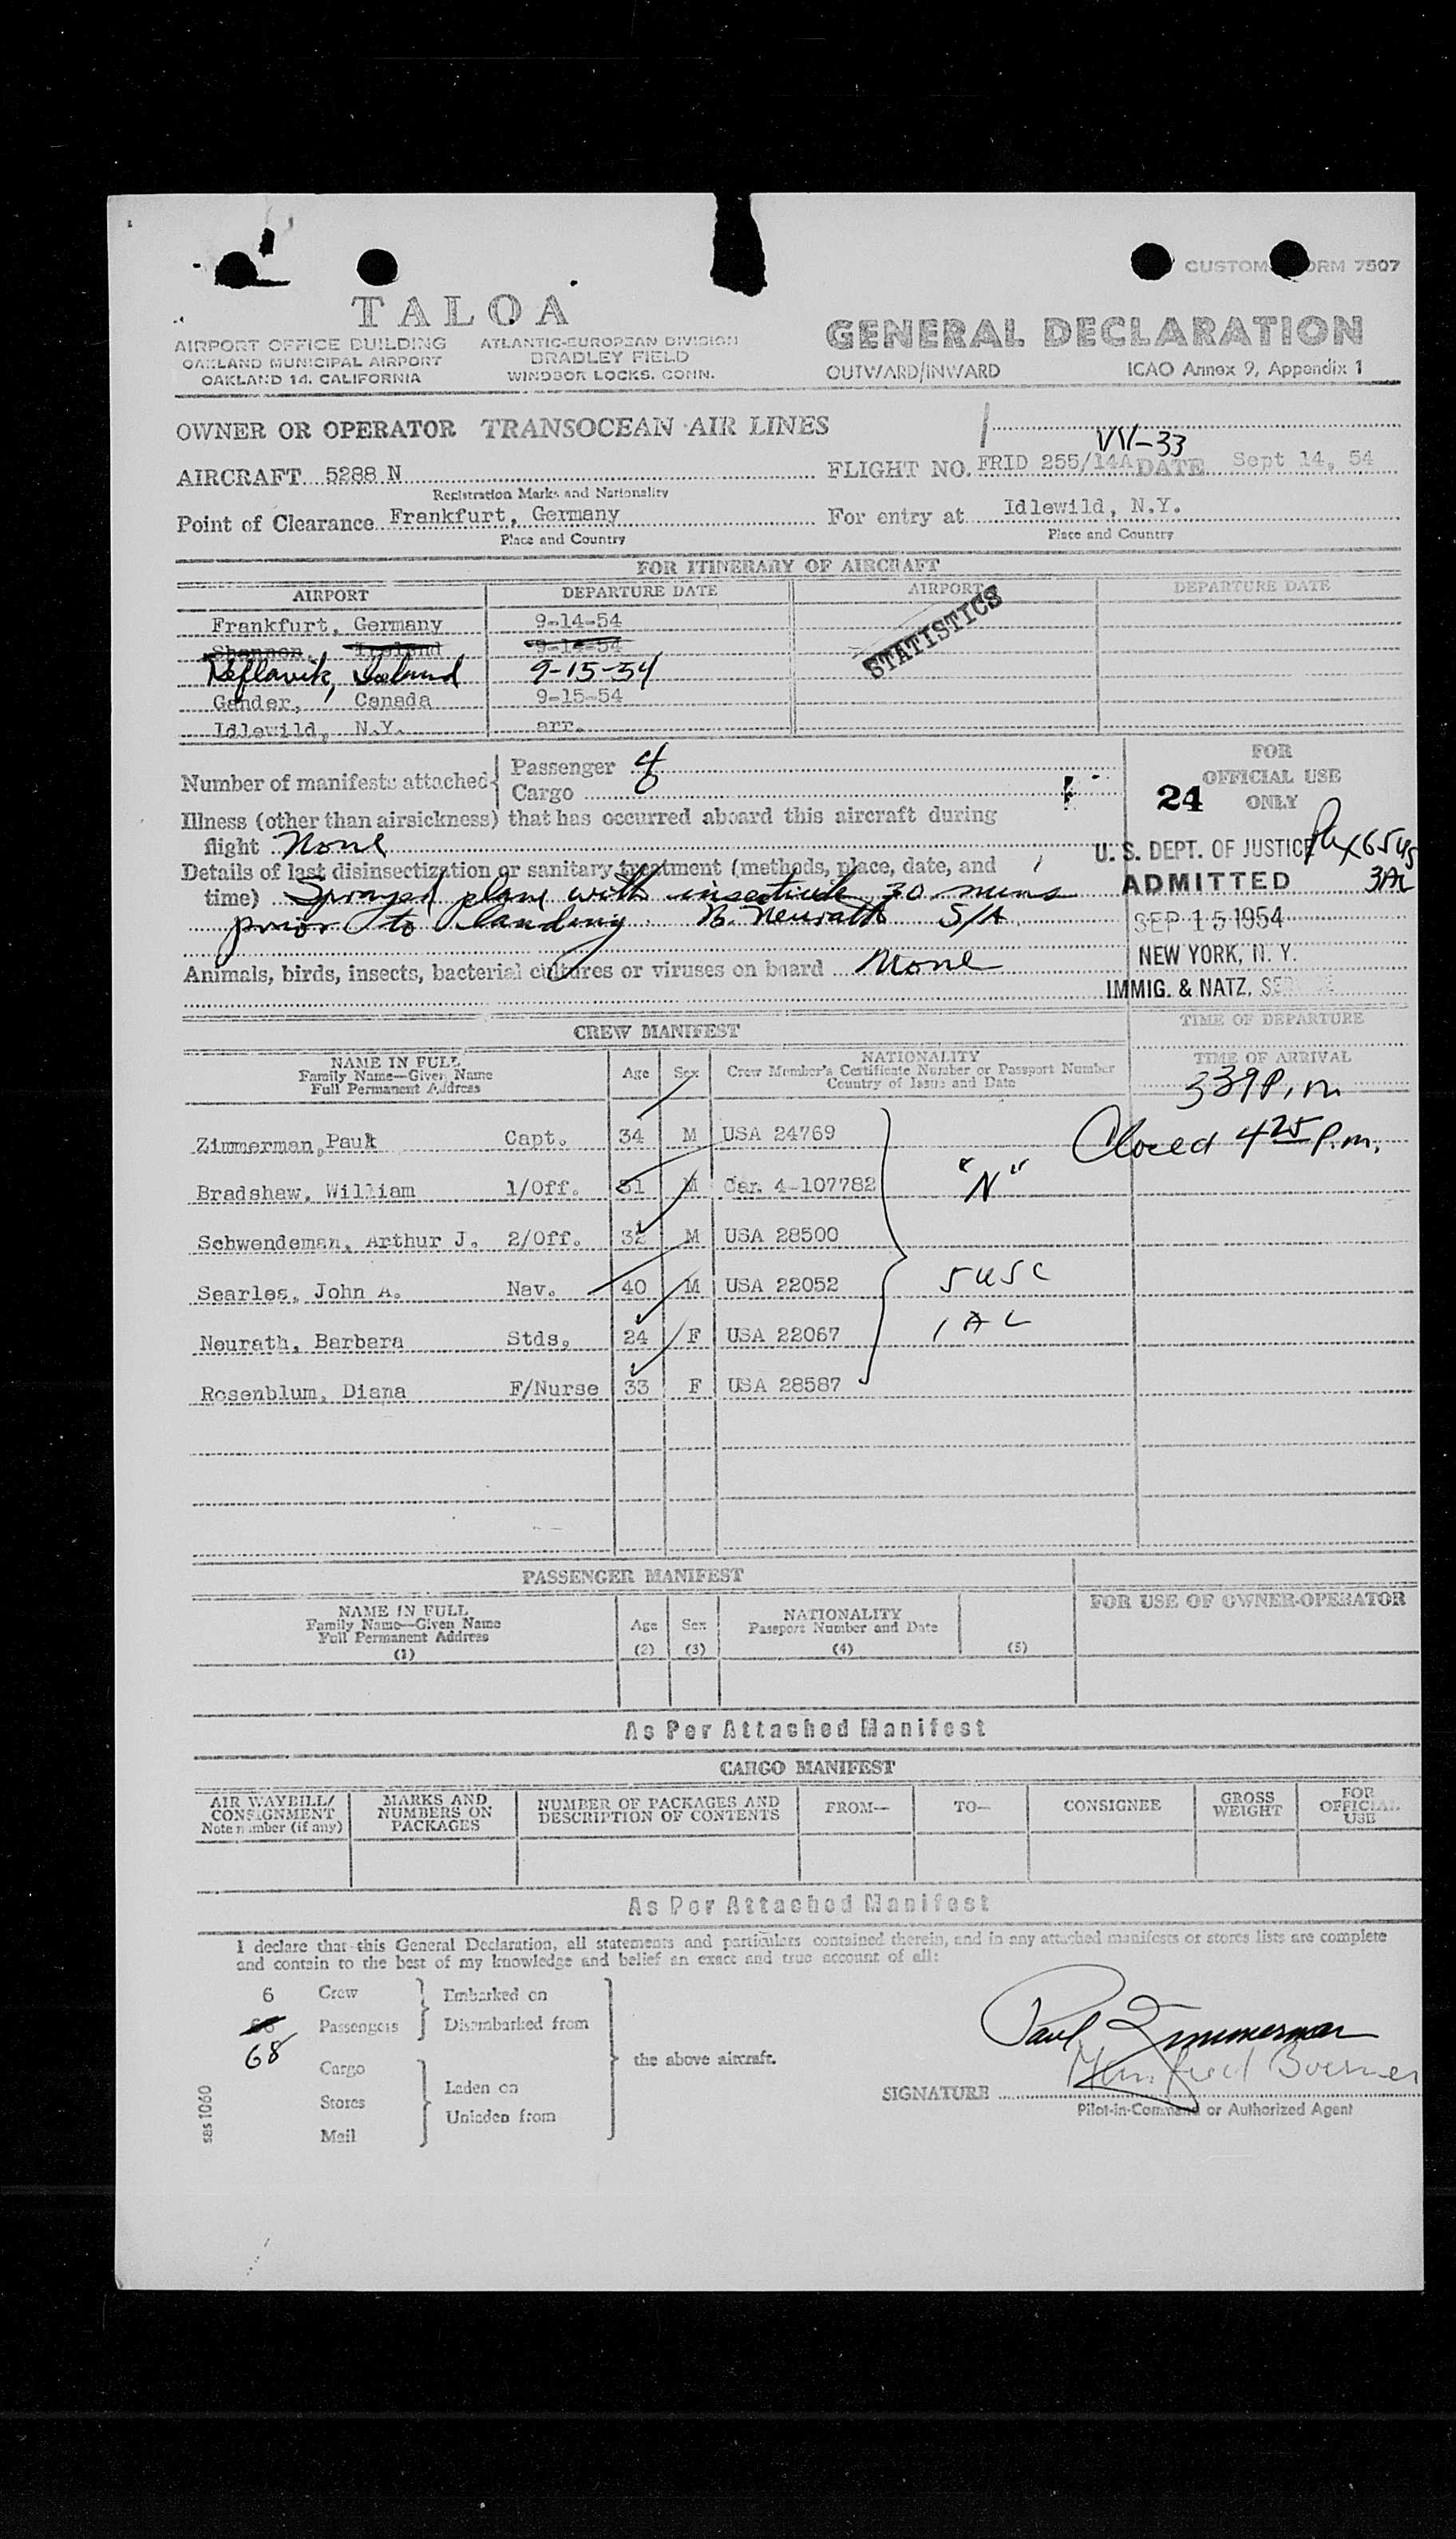 CUSTOMS FORM 7507
TALOA
AIRPORT OFFICE BUILDING
OAKLAND MUNICIPAL AIRPORT
OAKLAND 14, CALIFORNIA
ATLANTIC-EUROPEAN DIVISION
BRADLEY FIELD
WINDSOR LOCKS, CONN.
GENERAL DECLARATION
OUTWARD/INWARD ICAO Annex 9, Appendix 1
OWNER OR OPERATOR TRANSOCEAN AIR LINES
VV-33
AIRCRAFT 5288 N FLIGHT NO. FRID 255/14A DATE Sept 14, 54
Registration Marks and Nationality
Point of Clearance Frankfurt, Germany For entry at Idlewild, N.Y.
Place and Country Place and Country
FOR ITINERARY OF AIRCRAFT
AIRPORT DEPARTURE DATE AIRPORT DEPARTURE DATE
STATISTICS
Frankfurt, Germany 9-14-54
Shannon, Ireland 9-14-54
Keflavik, Iceland 9-15-54
Gander, Canada 9-15-54
Idlewild, N.Y. arr.
Number of manifests attached Passenger 4
Cargo 0
FOR
OFFICIAL USE
ONLY
24
Illness (other than airsickness) that has occurred aboard this aircraft during
flight None
Details of last disinsectization or sanitary treatment (methods, place, date, and
time) Sprayed plane with insecticide 30 mins
prior to landing. B. Neurath S/A
Animals, birds, insects, bacterial cultures or viruses on board None
U. S. DEPT. OF JUSTICE
ADMITTED
SEP 15 1954
NEW YORK, N. Y.
IMMIG. & NATZ. SERVICE
CREW MANIFEST
TIME OF DEPARTURE
TIME OF ARRIVAL
339 P.m
Closed 425 P.m.
NAME IN FULL
Family Name—Given Name
Full Permanent Address
Age Sex
NATIONALITY
Crew Member's Certificate Number or Passport Number
Country of Issue and Date
Zimmerman, Paul Capt. 34 M USA 24769
Bradshaw, William 1/Off. 31 M Can 4-107782
"N"
Schwendeman, Arthur J. 2/Off. 32 M USA 28500
Searles, John A. Nav. 40 M USA 22052
5 USC
Neurath, Barbara Stds. 24 F USA 22067
1 AL
Rosenblum, Diana F/Nurse 33 F USA 28587
PASSENGER MANIFEST
FOR USE OF OWNER-OPERATOR
NAME IN FULL
Family Name—Given Name
Full Permanent Address
(1)
Age (2) Sex (3)
NATIONALITY
Passport Number and Date
(4) (5)
As Per Attached Manifest
CARGO MANIFEST
AIR WAYBILL/
CONSIGNMENT
Note number (if any)
MARKS AND
NUMBERS ON
PACKAGES
NUMBER OF PACKAGES AND
DESCRIPTION OF CONTENTS
FROM— TO— CONSIGNEE
GROSS
WEIGHT
FOR
OFFICIAL
USE
As Per Attached Manifest
I declare that this General Declaration, all statements and particulars contained therein, and in any attached manifests or stores lists are complete
and contain to the best of my knowledge and belief an exact and true account of all:
6 Crew Embarked on
Passengers Disembarked from
68
the above aircraft.
Cargo
Laden on
Stores
Unladen from
Mail
sas 1060
Paul Zimmerman
SIGNATURE
Pilot-in-Command or Authorized Agent